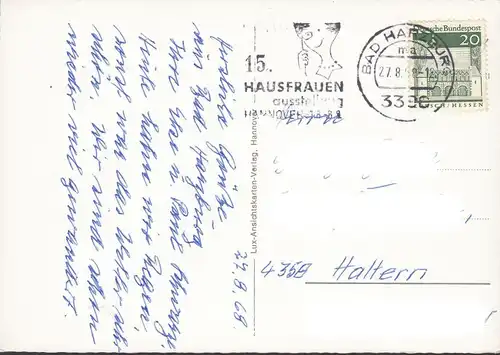 15.
HAUSFRAUEN
ausstellung
HANNOVER
BAD HARZBURG
27.8.68
Deutsche Bundespost
20
HESSEN
Herzliche Grüße
aus Bad Harzburg
Ihre
Heute haben wir Regen,
sonst war das Wetter sehr
schön. Wir sind schon
wieder viel gewandert.
27.8.68.
Lux-Ansichtskarten-Verlag, Hannover
4358 Haltern